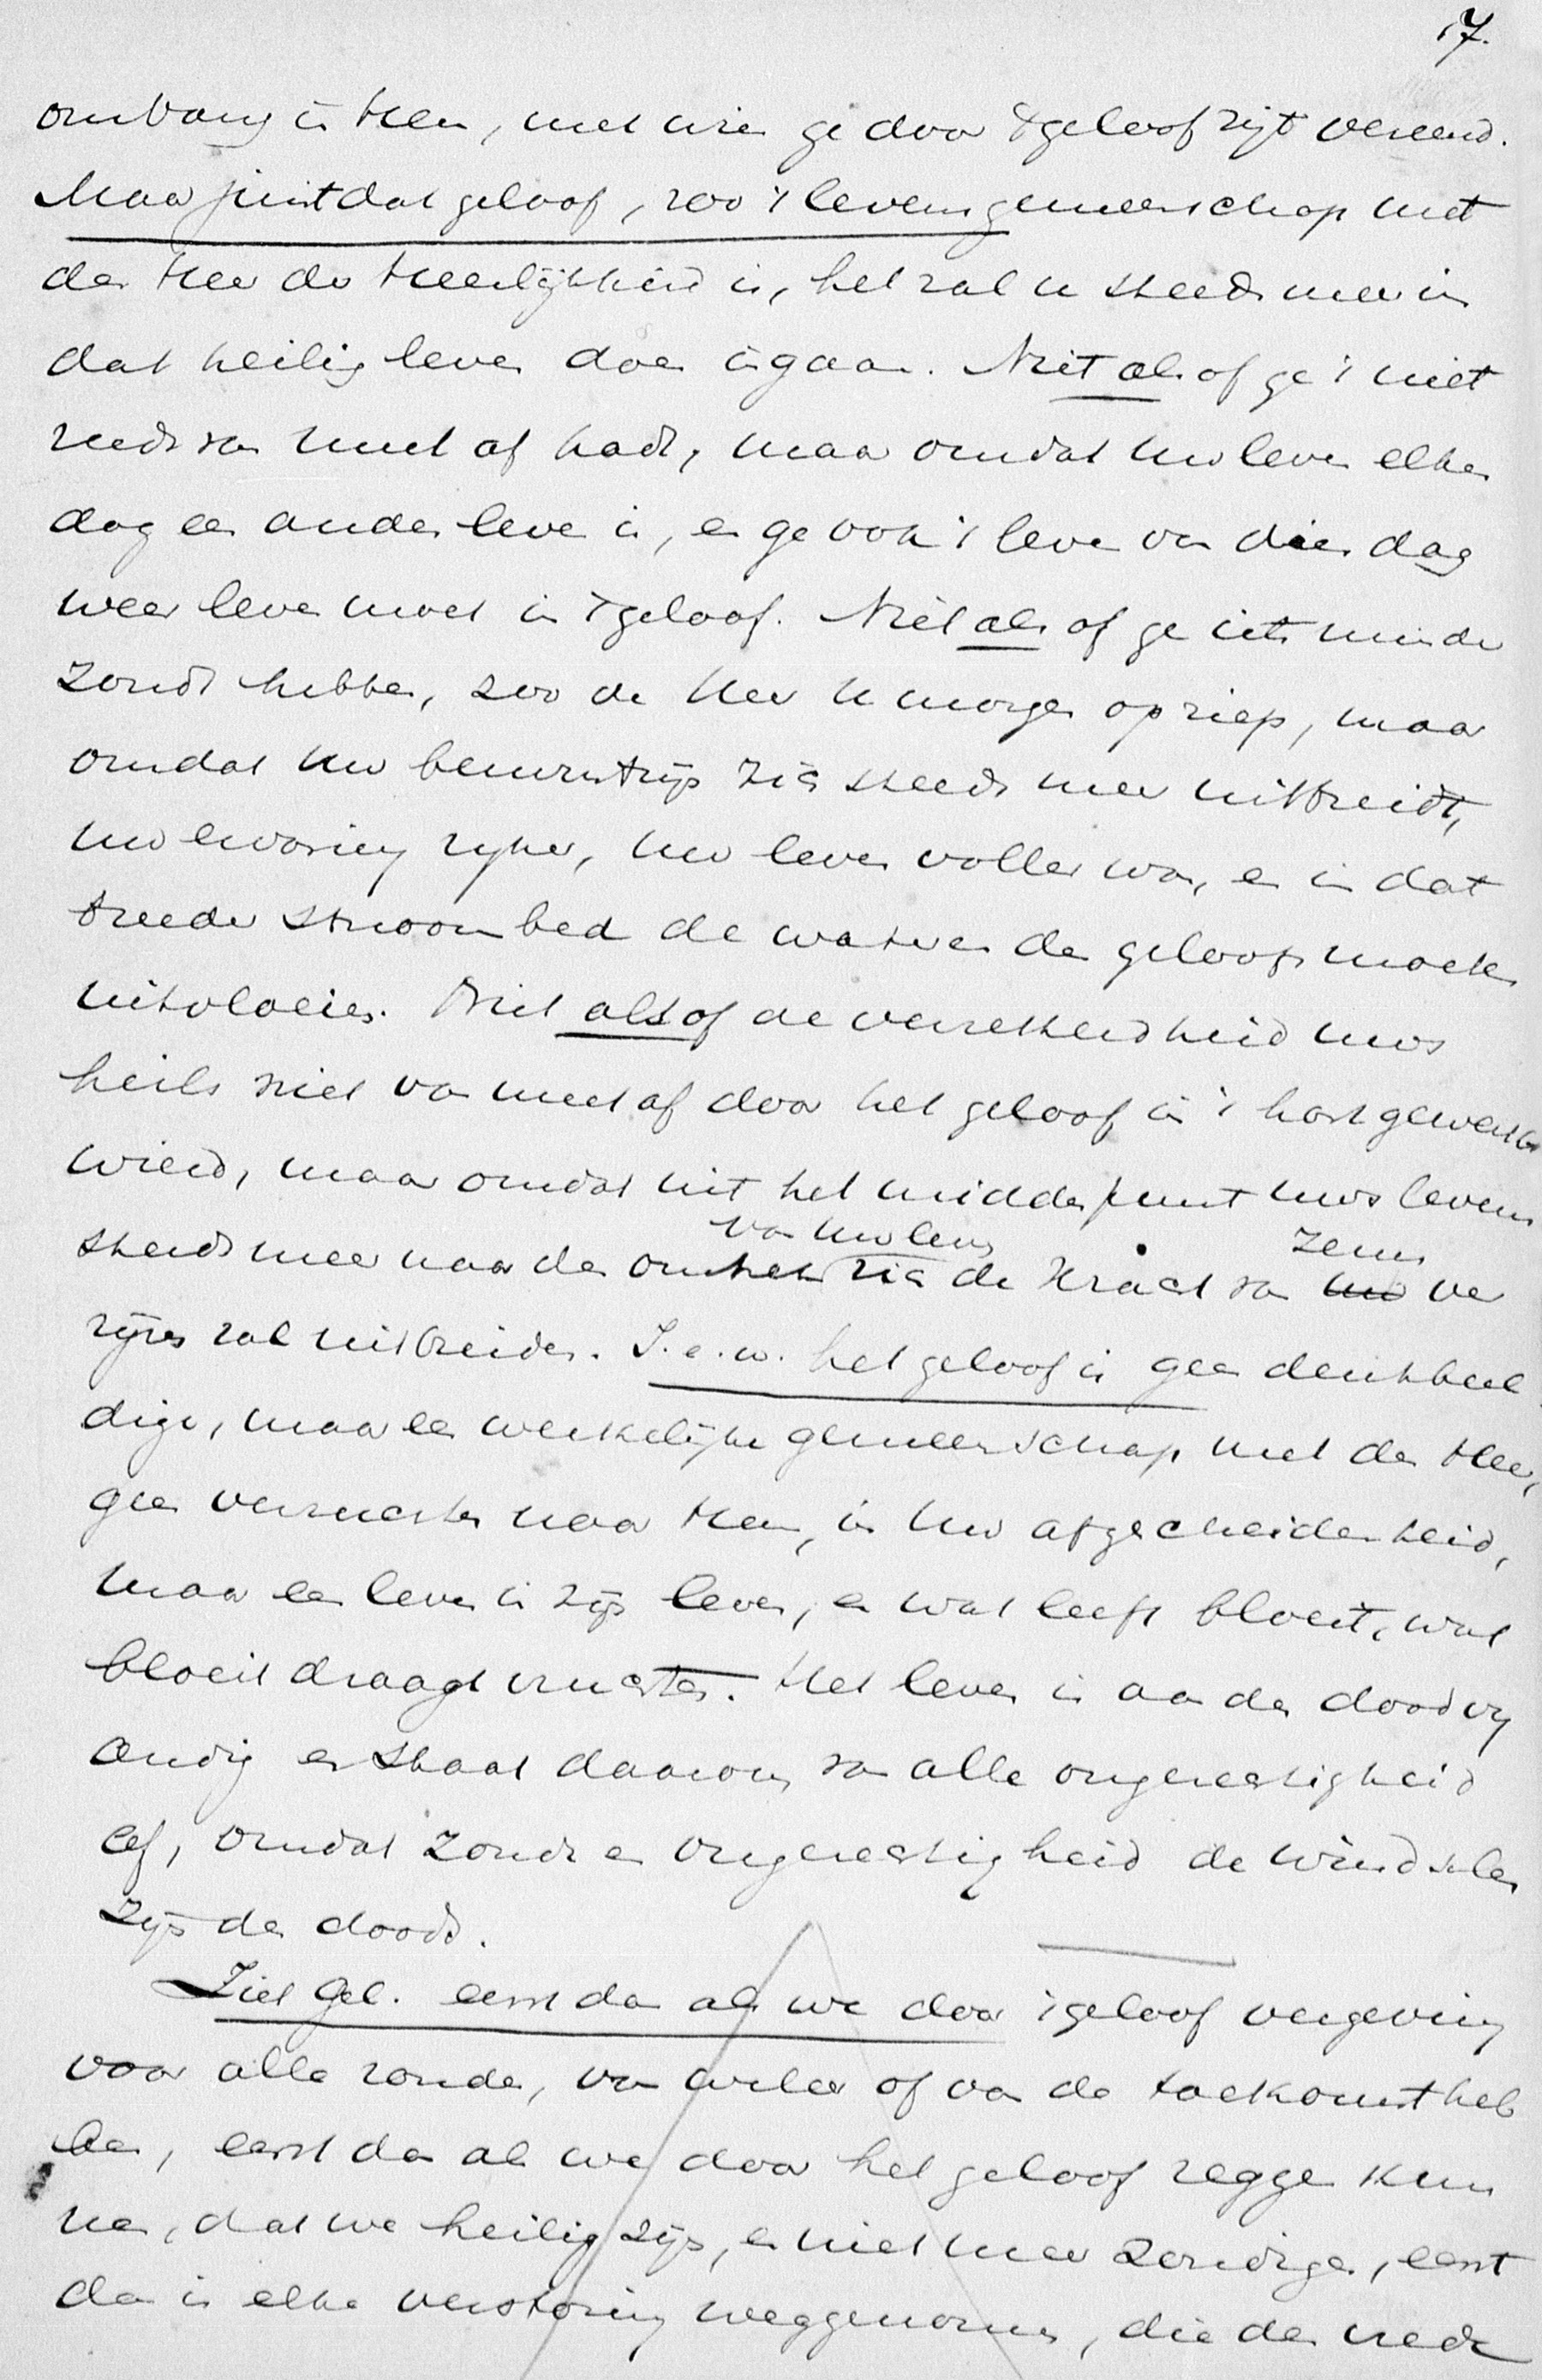 17.
omvang in Hem, met wien ge door 't geloof zijt vereend.
Maar juist dat geloof, zoo 't levensgemeenschap met
den Heer der Heerlijkheid is, het zal u steeds meer in
dat heilig leven doen ingaan. Niet als of ge 't niet
reeds van meet af hadt, maar omdat uw leven elken
dag een ander leven is, en ge ook 't leven van dien dag
weer leven moet in 't geloof. Niet als of ge iets minder
zoudt hebben, zoo de Heer u morgen opriep, maar
omdat uw bewustzijn zich steeds meer uitbreidt,
uw ervaring rijker, uw leven voller wordt, en in dat
breeder stroombed de wateren des geloofs moeten
uitvloeien. Niet alsof de verzekerdheid uws
heils niet van meet af door het geloof in 't hart gewerkt
wierd, maar omdat uit het middenpunt uws levens
van uw leven zenuw
steeds meer naar den omtrek zich de kracht van uw ver
rijzen zal uitbreiden. I.e.w. het geloof is geen denkbeel
dige, maar een werkelijke gemeenschap met den Heer,
geen verzuchten naar Hem, in uw afgescheidenheid,
maar een leven in zijn leven, en wat leeft bloeit, wat
bloeit draagt vruchten. Het leven is aan den dood vij
andig en staat daarom van alle ongerechtigheid
af, omdat zonde en ongerechtigheid de windselen
zijn des doods.
Ziet Gel. eerst dan als we door 't geloof vergeving
voor alle zonden, van weleer of van de toekomst heb
ben, eerst dan als we door het geloof zeggen kun
nen, dat we heilig zijn, en niet meer zondigen, eerst
dan is elke verstoring weggenomen, die den vrede